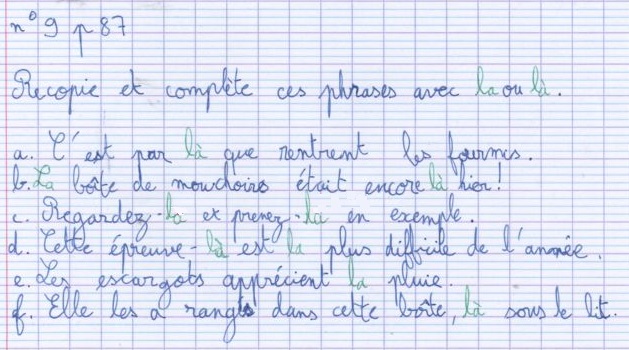 n° 9 p 87
Recopie et complète ces phrases avec la ou là.
a. C'est par là que rentrent les fourmis.
b. La boîte de mouchoirs était encore là hier!
c. Regardez-la et prenez-la en exemple.
d. Cette épreuve-là est la plus difficile de l'année.
e. Les escargots apprécient la pluie.
f. Elle les a rangés dans cette boîte, là sous le lit.